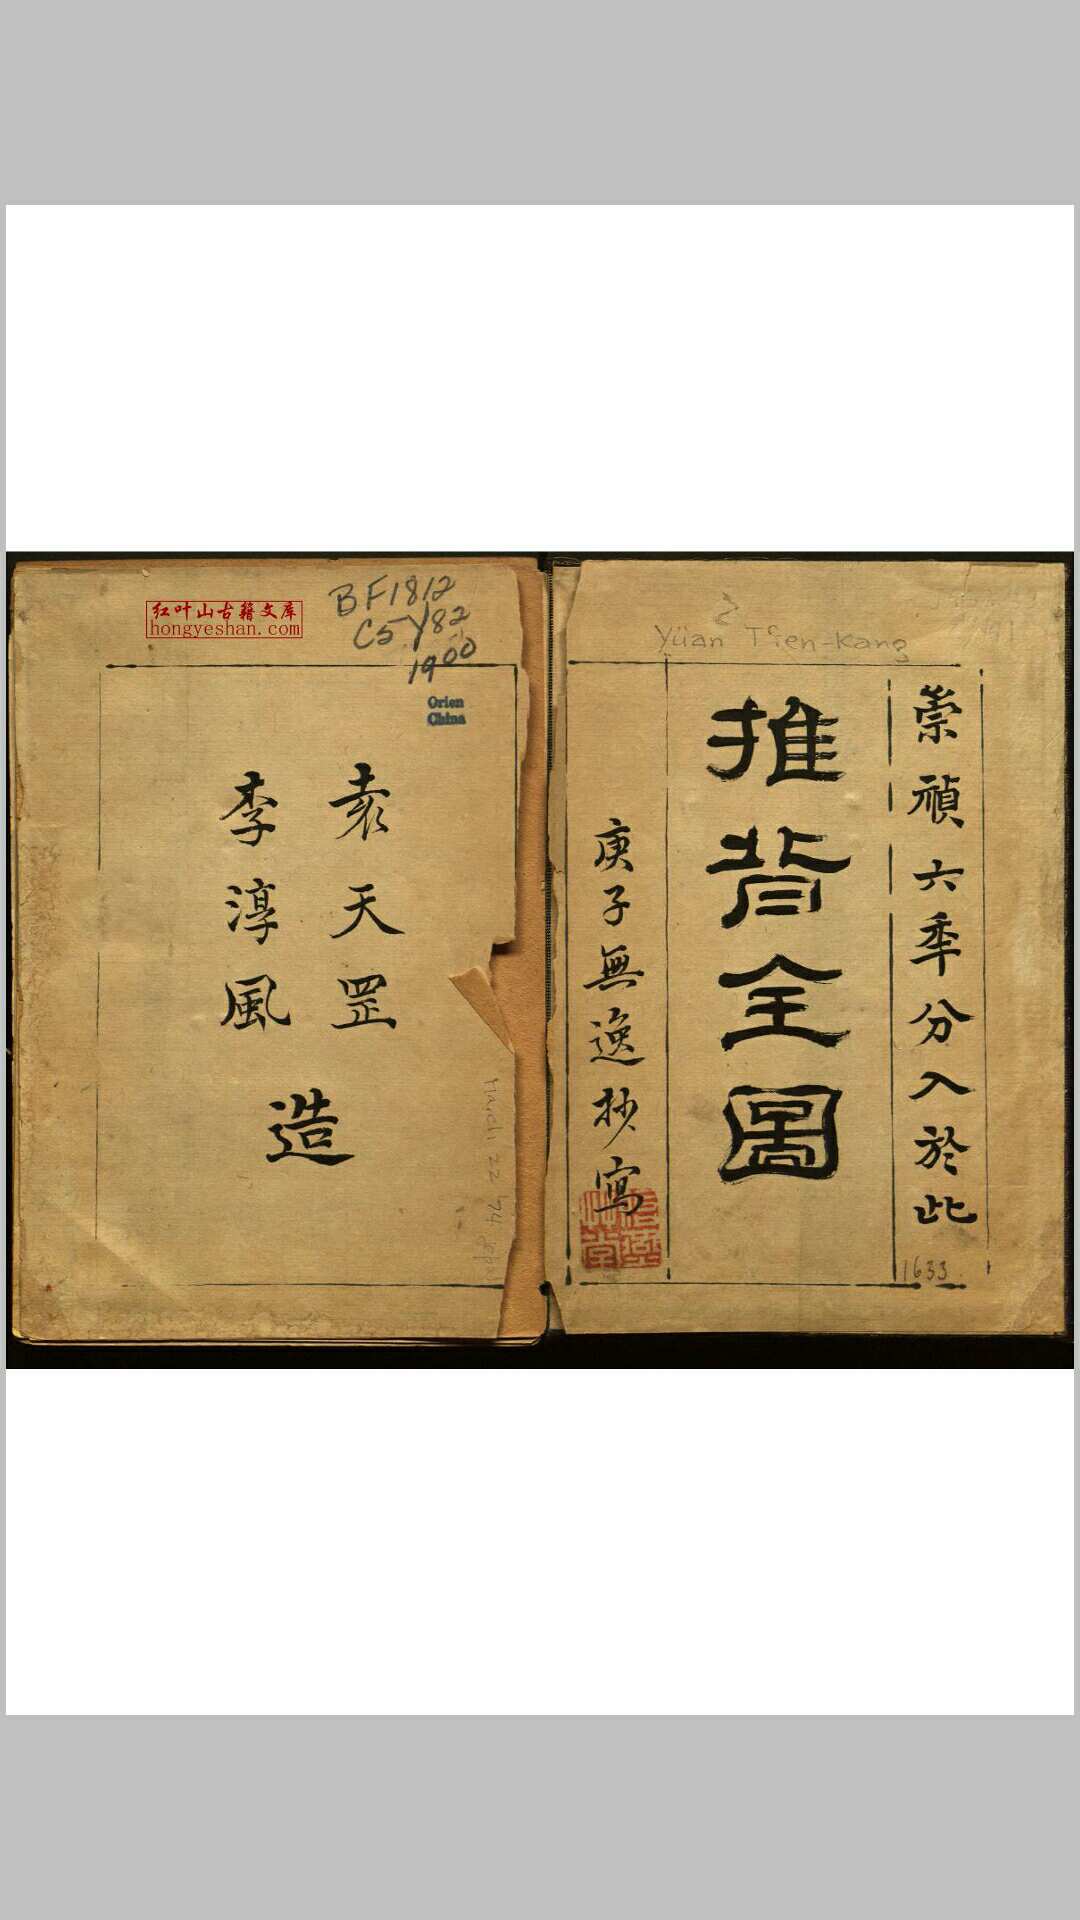 Yüan T'ien-Kang
崇禎六年分入於此
1633
推背全圖
庚子無逸抄寫
BF1812
C5Y82
1900
Orien
China
红叶山古籍文库
hongyeshan.com
袁天罡
李淳風
造
March 22 '74